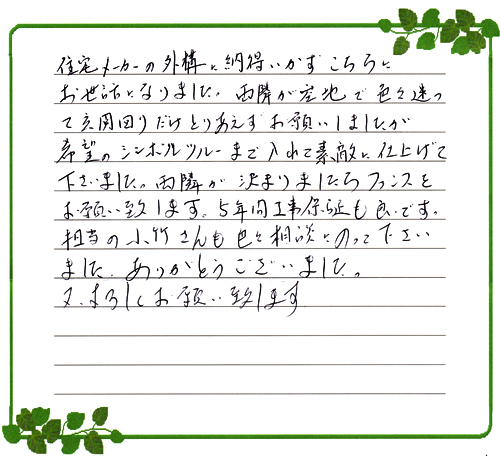 住宅メーカーの外構に納得いかずこちらに
お世話になりました。両隣が空地で色々迷っ
て玄関回りだけとりあえずお願いしましたが
希望のシンボルツリーまで入れて素敵に仕上げて
下さいました。両隣が決まりましたらフェンスを
お願い致します。5年間工事保証も良いです。
担当の小竹さんも色々相談にのって下さい
ました。ありがとうございました。
又よろしくお願い致します